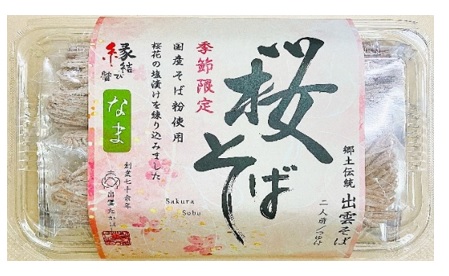 桜そば
郷土伝統 出雲そば
二人前
Sakura
Soba
季節限定
国産そば粉使用
桜花の塩漬けを練り込みました
創業七十余年
出雲たかはし
縁結び
なま